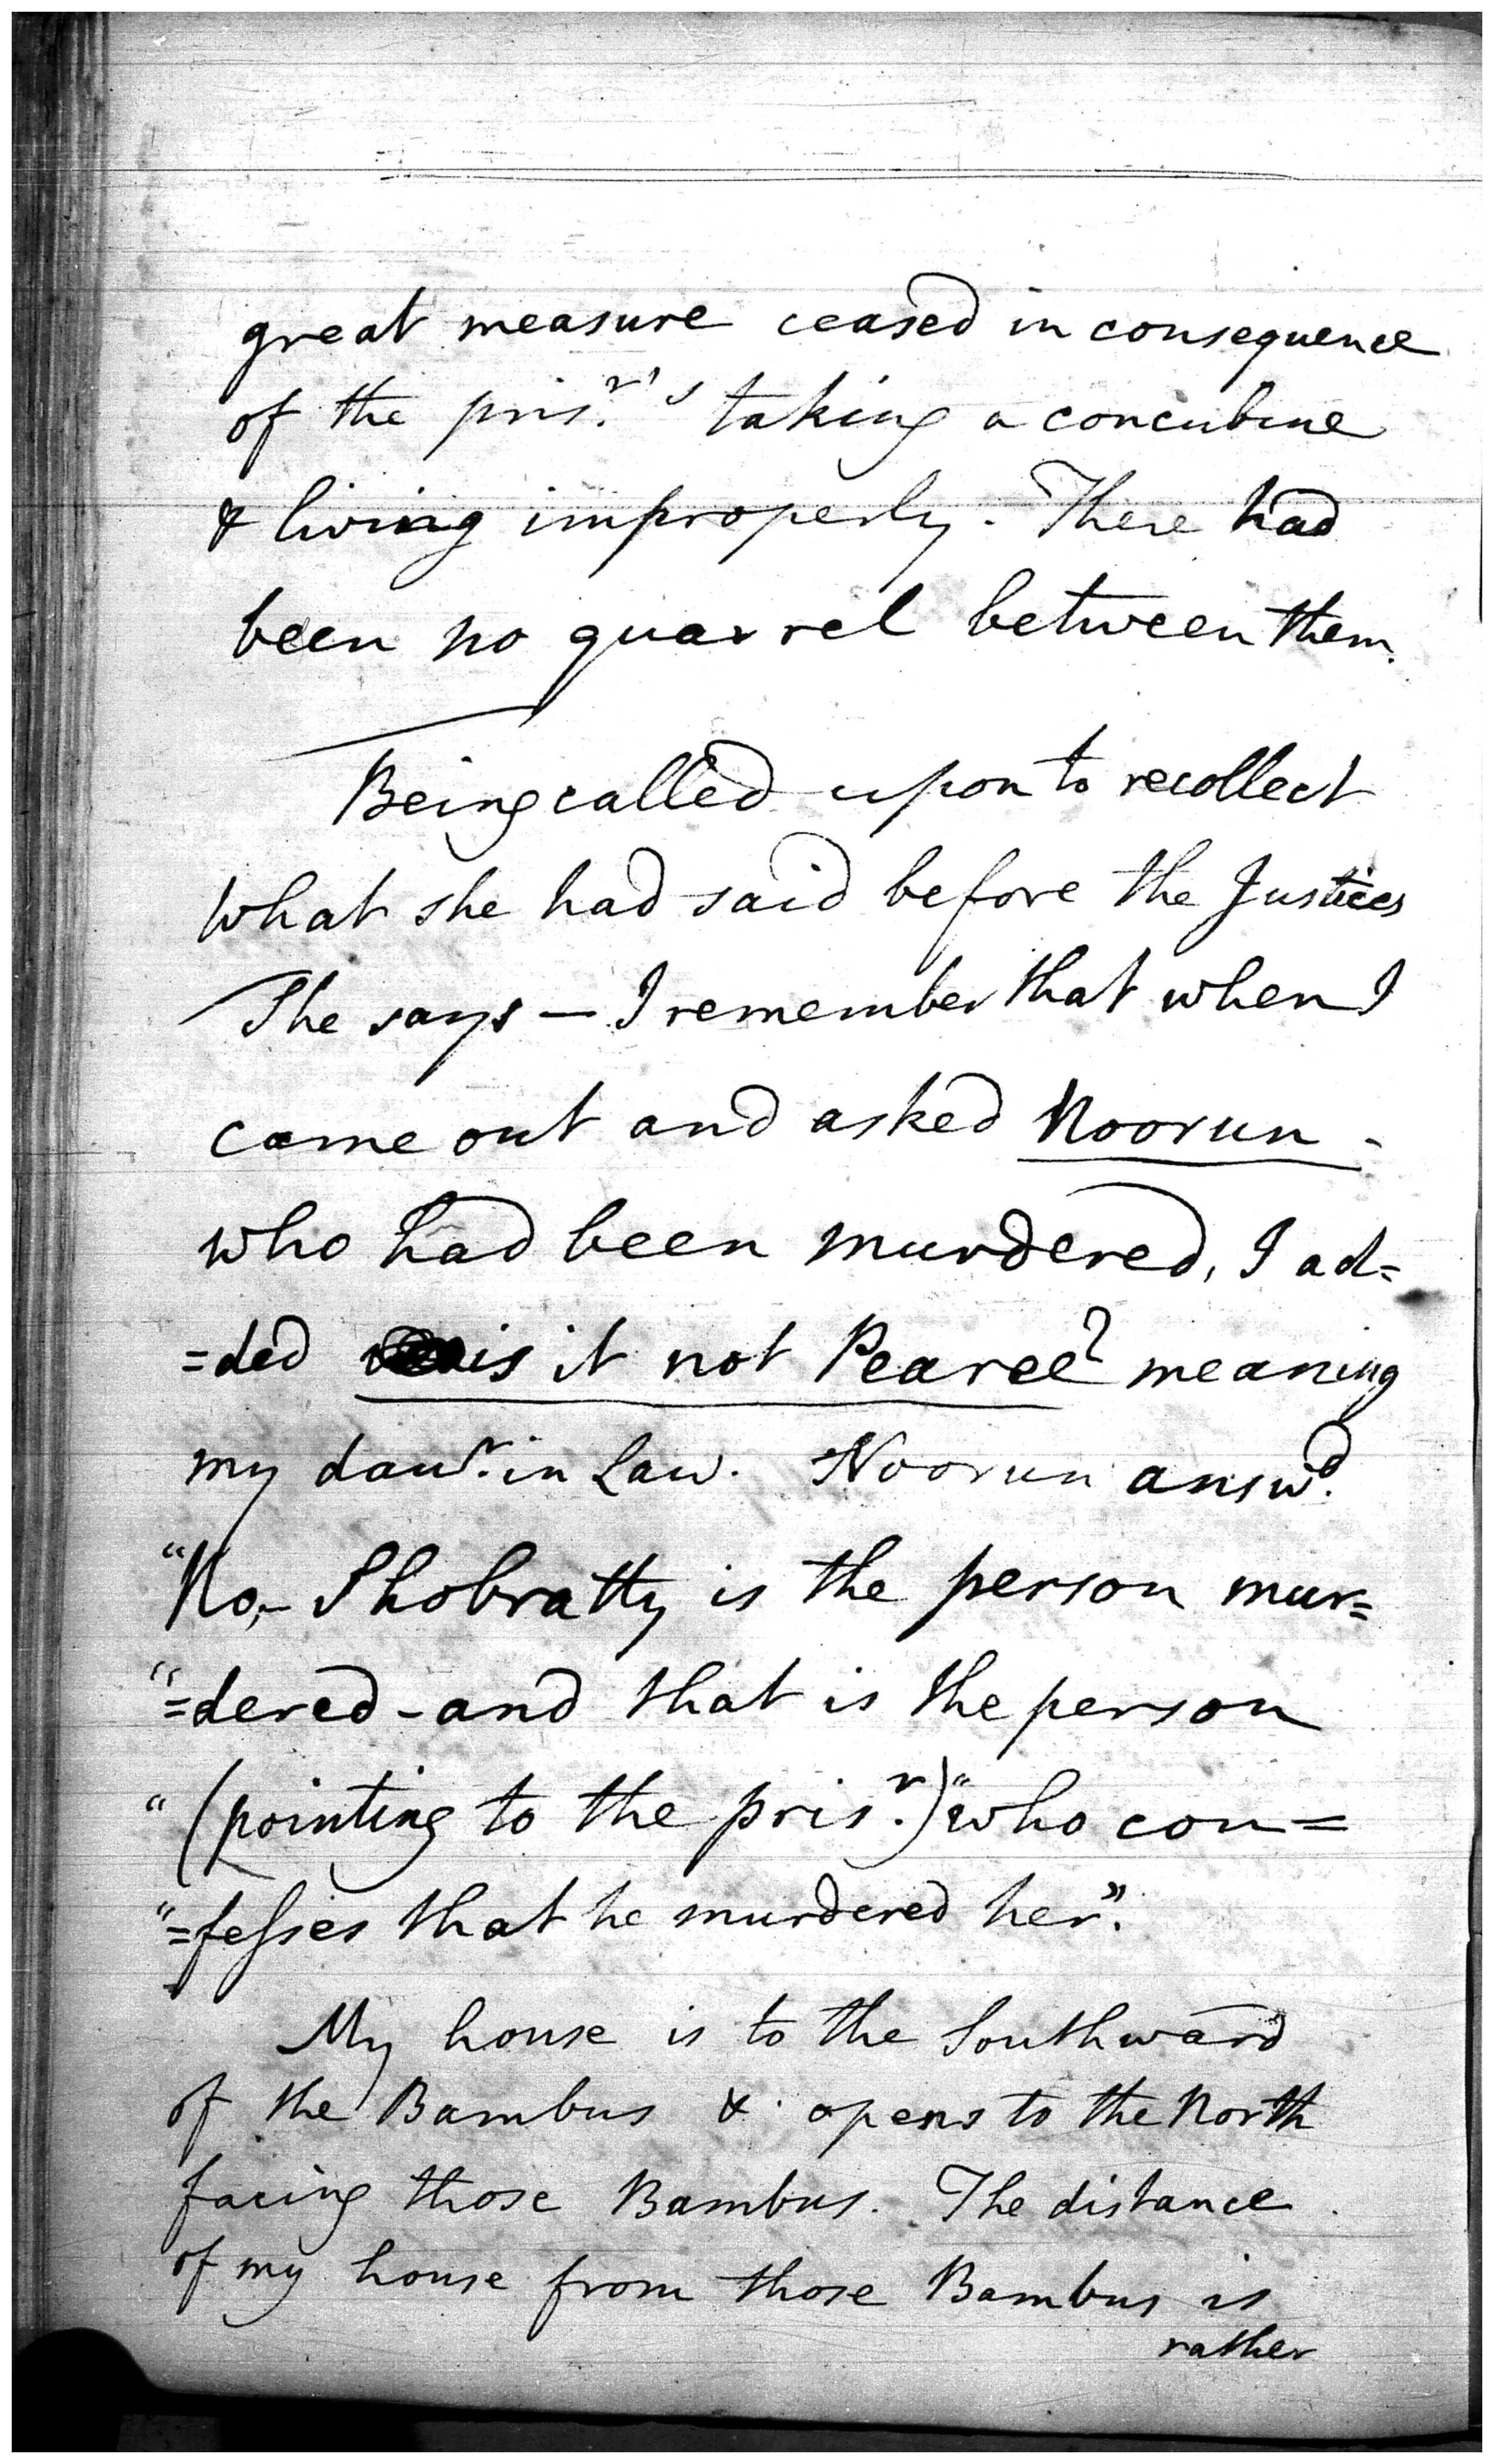 great measure ceased in consequence
of the pris.r's taking a concubine
& living improperly. There had
been no quarrel between them.
Being called upon to recollect
what she had said before the Justices
She says — I remember that when I
came out and asked Noorun -
who had been murdered, I ad=
=ded is it not Pearee? meaning
my daur. in Law. Noorun answd.
"No, - Shobratty is the person mur=
"=dered - and that is the person
"(pointing to the prisr.) "who con=
"=fesses that he murdered her".
My house is to the Southward
of the Bambus & opens to the North
facing those Bambus. The distance
of my house from those Bambus is
rather